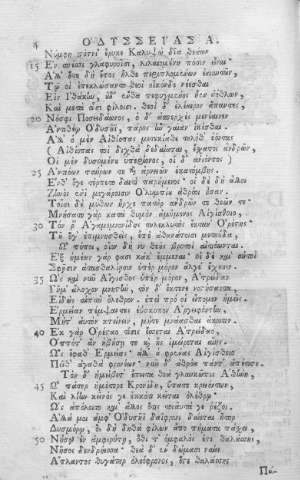 4 ΟΔΥΣΣΕΙΑΣ Α.
Νύμφη πότνι' ἔρυκε Καλυψὼ δῖα θεάων
15 Ἐν σπέσσι γλαφυροῖσι, λιλαιομένη πόσιν εἶναι
Ἀλλ' ὅτε δὴ ἔτος ἦλθε περιπλομένων ἐνιαυτῶν,
Τῷ οἱ ἐπεκλώσαντο θεοὶ οἶκόνδε νέεσθαι
Εἰς Ἰθάκην, οὐδ' ἔνθα πεφυγμένος ἦεν ἀέθλων,
Καὶ μετὰ οἷσι φίλοισι. θεοὶ δ' ἐλέαιρον ἅπαντες,
20 Νόσφι Ποσειδάωνος, ὁ δ' ἀσπερχὲς μενέαινεν
Ἀντιθέῳ Ὀδυσῆϊ, πάρος ἣν γαῖαν ἱκέσθαι.
Ἀλλ' ὁ μὲν Αἰθίοπας μετεκίαθε τηλόθ' ἐόντας
(Αἰθίοπας τοὶ διχθὰ δεδαίαται, ἔσχατοι ἀνδρῶν,
Οἱ μὲν δυσομένου ὑπερίονος, οἱ δ' ἀνιόντος)
25 Ἀντιόων ταύρων τε καὶ ἀρνειῶν ἑκατόμβης.
Ἔνθ' ὅγε τέρπετο δαιτὶ παρήμενος· οἱ δὲ δὴ ἄλλοι
Ζηνὸς ἐνὶ μεγάροισιν Ὀλυμπίου ἀθρόοι ἦσαν.
Τοῖσι δὲ μύθων ἦρχε πατὴρ ἀνδρῶν τε θεῶν τε·
Μνήσατο γὰρ κατὰ θυμὸν ἀμύμονος Αἰγίσθοιο,
30 Τόν ῥ' Ἀγαμεμνονίδης τηλεκλυτὸς ἔκταν' Ὀρέστης
Τοῦ ὅγ' ἐπιμνησθεὶς, ἔπε' ἀθανάτοισι μετηύδα,
Ὢ πόποι, οἷον δή νυ θεοὺς βροτοὶ αἰτιόωνται.
Ἐξ ἡμέων γάρ φασι κάκ' ἔμμεναι· οἱ δὲ καὶ αὐτοὶ
Σφῇσιν ἀτασθαλίῃσιν ὑπὲρ μόρον ἄλγε' ἔχουσιν·
35 Ὡς καὶ νῦν Αἴγισθος ὑπὲρ μόρον, Ἀτρείδαο
Γῆμ' ἄλοχον μνηστὴν, τὸν δ' ἔκτανε νοστήσαντα,
Εἰδὼς αἰπὺν ὄλεθρον. ἐπεὶ πρό οἱ εἴπομεν ἡμεῖς
Ἑρμείαν πέμψαντες ἐΰσκοπον Ἀργειφόντην,
Μήτ' αὐτὸν κτείνειν, μήτε μνάασθαι ἄκοιτιν.
40 Ἐκ γὰρ Ὀρέσταο τίσις ἔσσεται Ἀτρείδαο,
Ὁππότ' ἂν ἡβήσῃ τε καὶ ἧς ἱμείρεται αἴης.
Ὣς ἔφαθ' Ἑρμείας· ἀλλ' οὐ φρένας Αἰγίσθοιο
Πεῖθ' ἀγαθὰ φρονέων· νῦν δ' ἀθρόα πάντ' ἀπέτισε.
Τὸν δ' ἠμείβετ' ἔπειτα θεὰ γλαυκῶπις Ἀθήνη,
45 Ὦ πάτερ ἡμέτερε Κρονίδη, ὕπατε κρειόντων,
Καὶ λίην κεῖνός γε ἐοικότι κεῖται ὀλέθρῳ·
Ὡς ἀπόλοιτο καὶ ἄλλος ὅτις τοιαῦτά γε ῥέζοι.
Ἀλλά μοι ἀμφ' Ὀδυσῆϊ δαΐφρονι δαίεται ἦτορ
Δυσμόρῳ, ὃς δὴ δηθὰ φίλων ἄπο πήματα πάσχει,
50 Νήσῳ ἐν ἀμφιρύτῃ, ὅθι τ' ὀμφαλός ἐστι θαλάσσης,
Νῆσος δενδρήεσσα· θεὰ δ' ἐν δώματα ναίει
Ἄτλαντος θυγάτηρ ὀλοόφρονος, ὅστε θαλάσσης